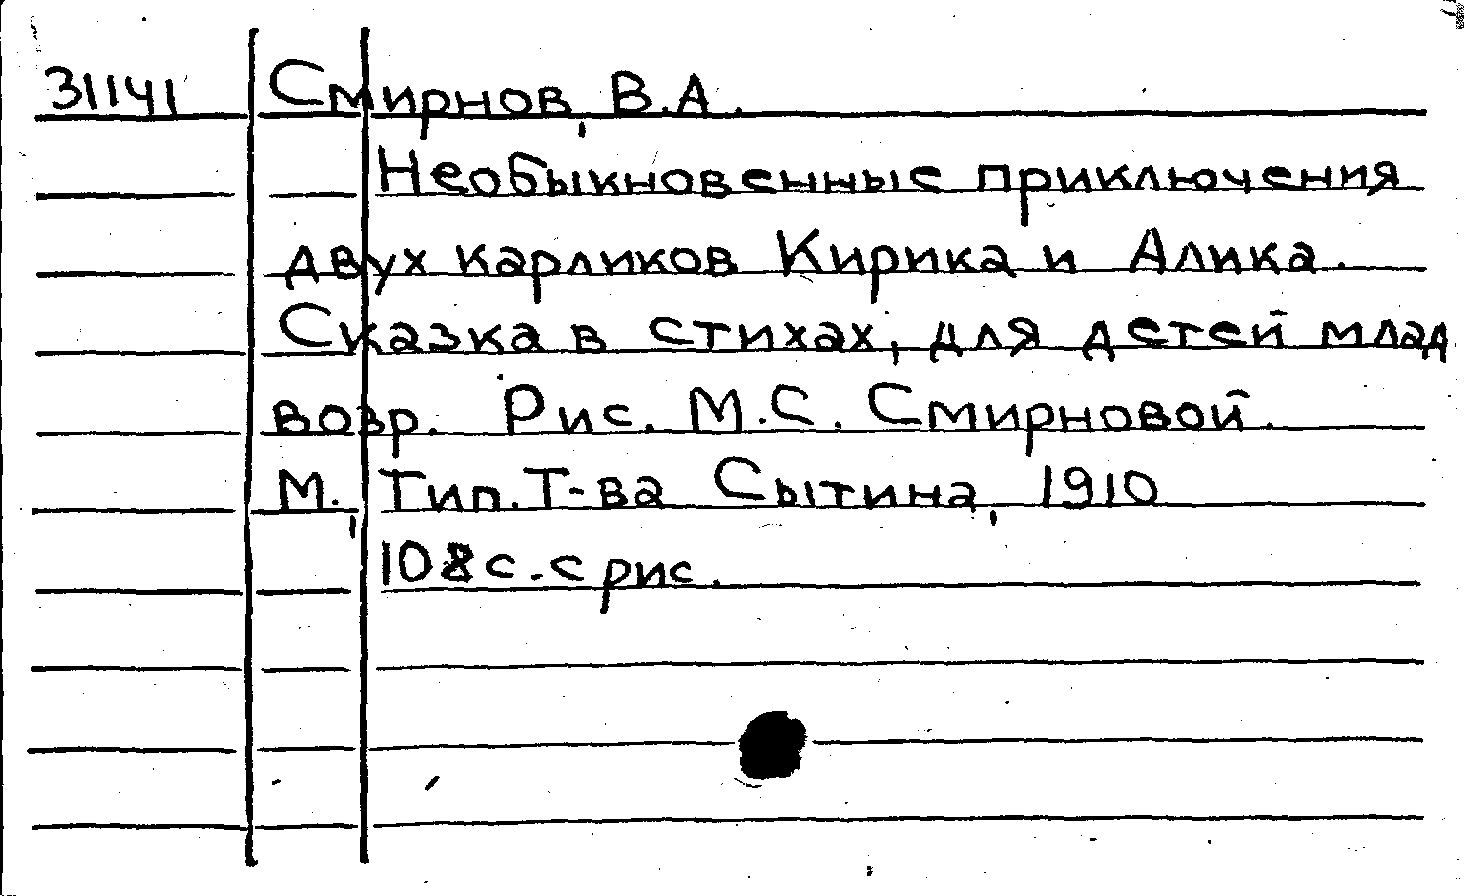 31141 Смирнов, В.А.
Необыкновенные приключения
двух карликов Кирика и Алика.
Сказка в стихах, для детей млад
возр. Рис. М.С. Смирновой.
М., Тип. Т-ва Сытина, 1910
108 с. с рис.